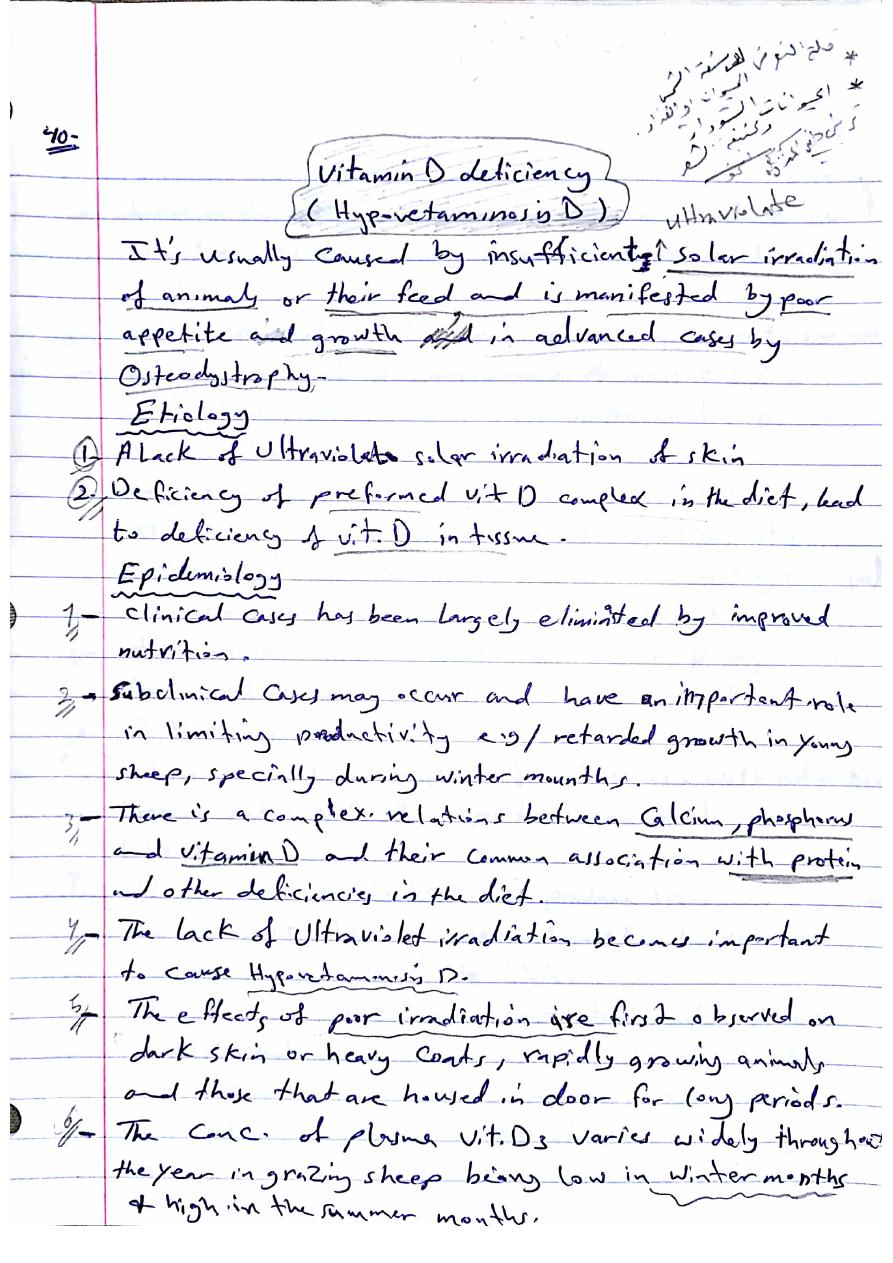 * قلة التعرض لاشعة الشمس
الحيوان او الغذاء.
* الحيوانات السوداء
وكثيفة الشعر
40-
Vitamin D deficiency
( Hypovetaminosis D )
ultraviolate
It's usually caused by insufficient ↑ solar irradiation
of animals or their feed and is manifested by poor
appetite and growth and in advanced cases by
Osteodystrophy-
Etiology
1- A lack of Ultraviolate solar irradiation of skin
2- Deficiency of preformed vit D complex in the diet, lead
to deficiency of vit. D in tissue.
Epidemiology
1- clinical cases has been largely eliminated by improved
nutrition.
2- Subclinical cases may occur and have an important role
in limiting productivity e.g/ retarded growth in young
sheep, specially during winter mounths.
3- There is a complex relations between Calcium, phosphorus
and vitamin D and their common association with protein
and other deficiencies in the diet.
4- The lack of Ultraviolet irradiation becomes important
to cause Hypovetaminosis D.
5- The effects of poor irradiation are first observed on
dark skin or heavy coats, rapidly growing animals
and those that are housed in door for long periods.
6- The conc. of plasma vit. D3 varies widely throughout
the year in grazing sheep being low in winter months
& high in the summer months.